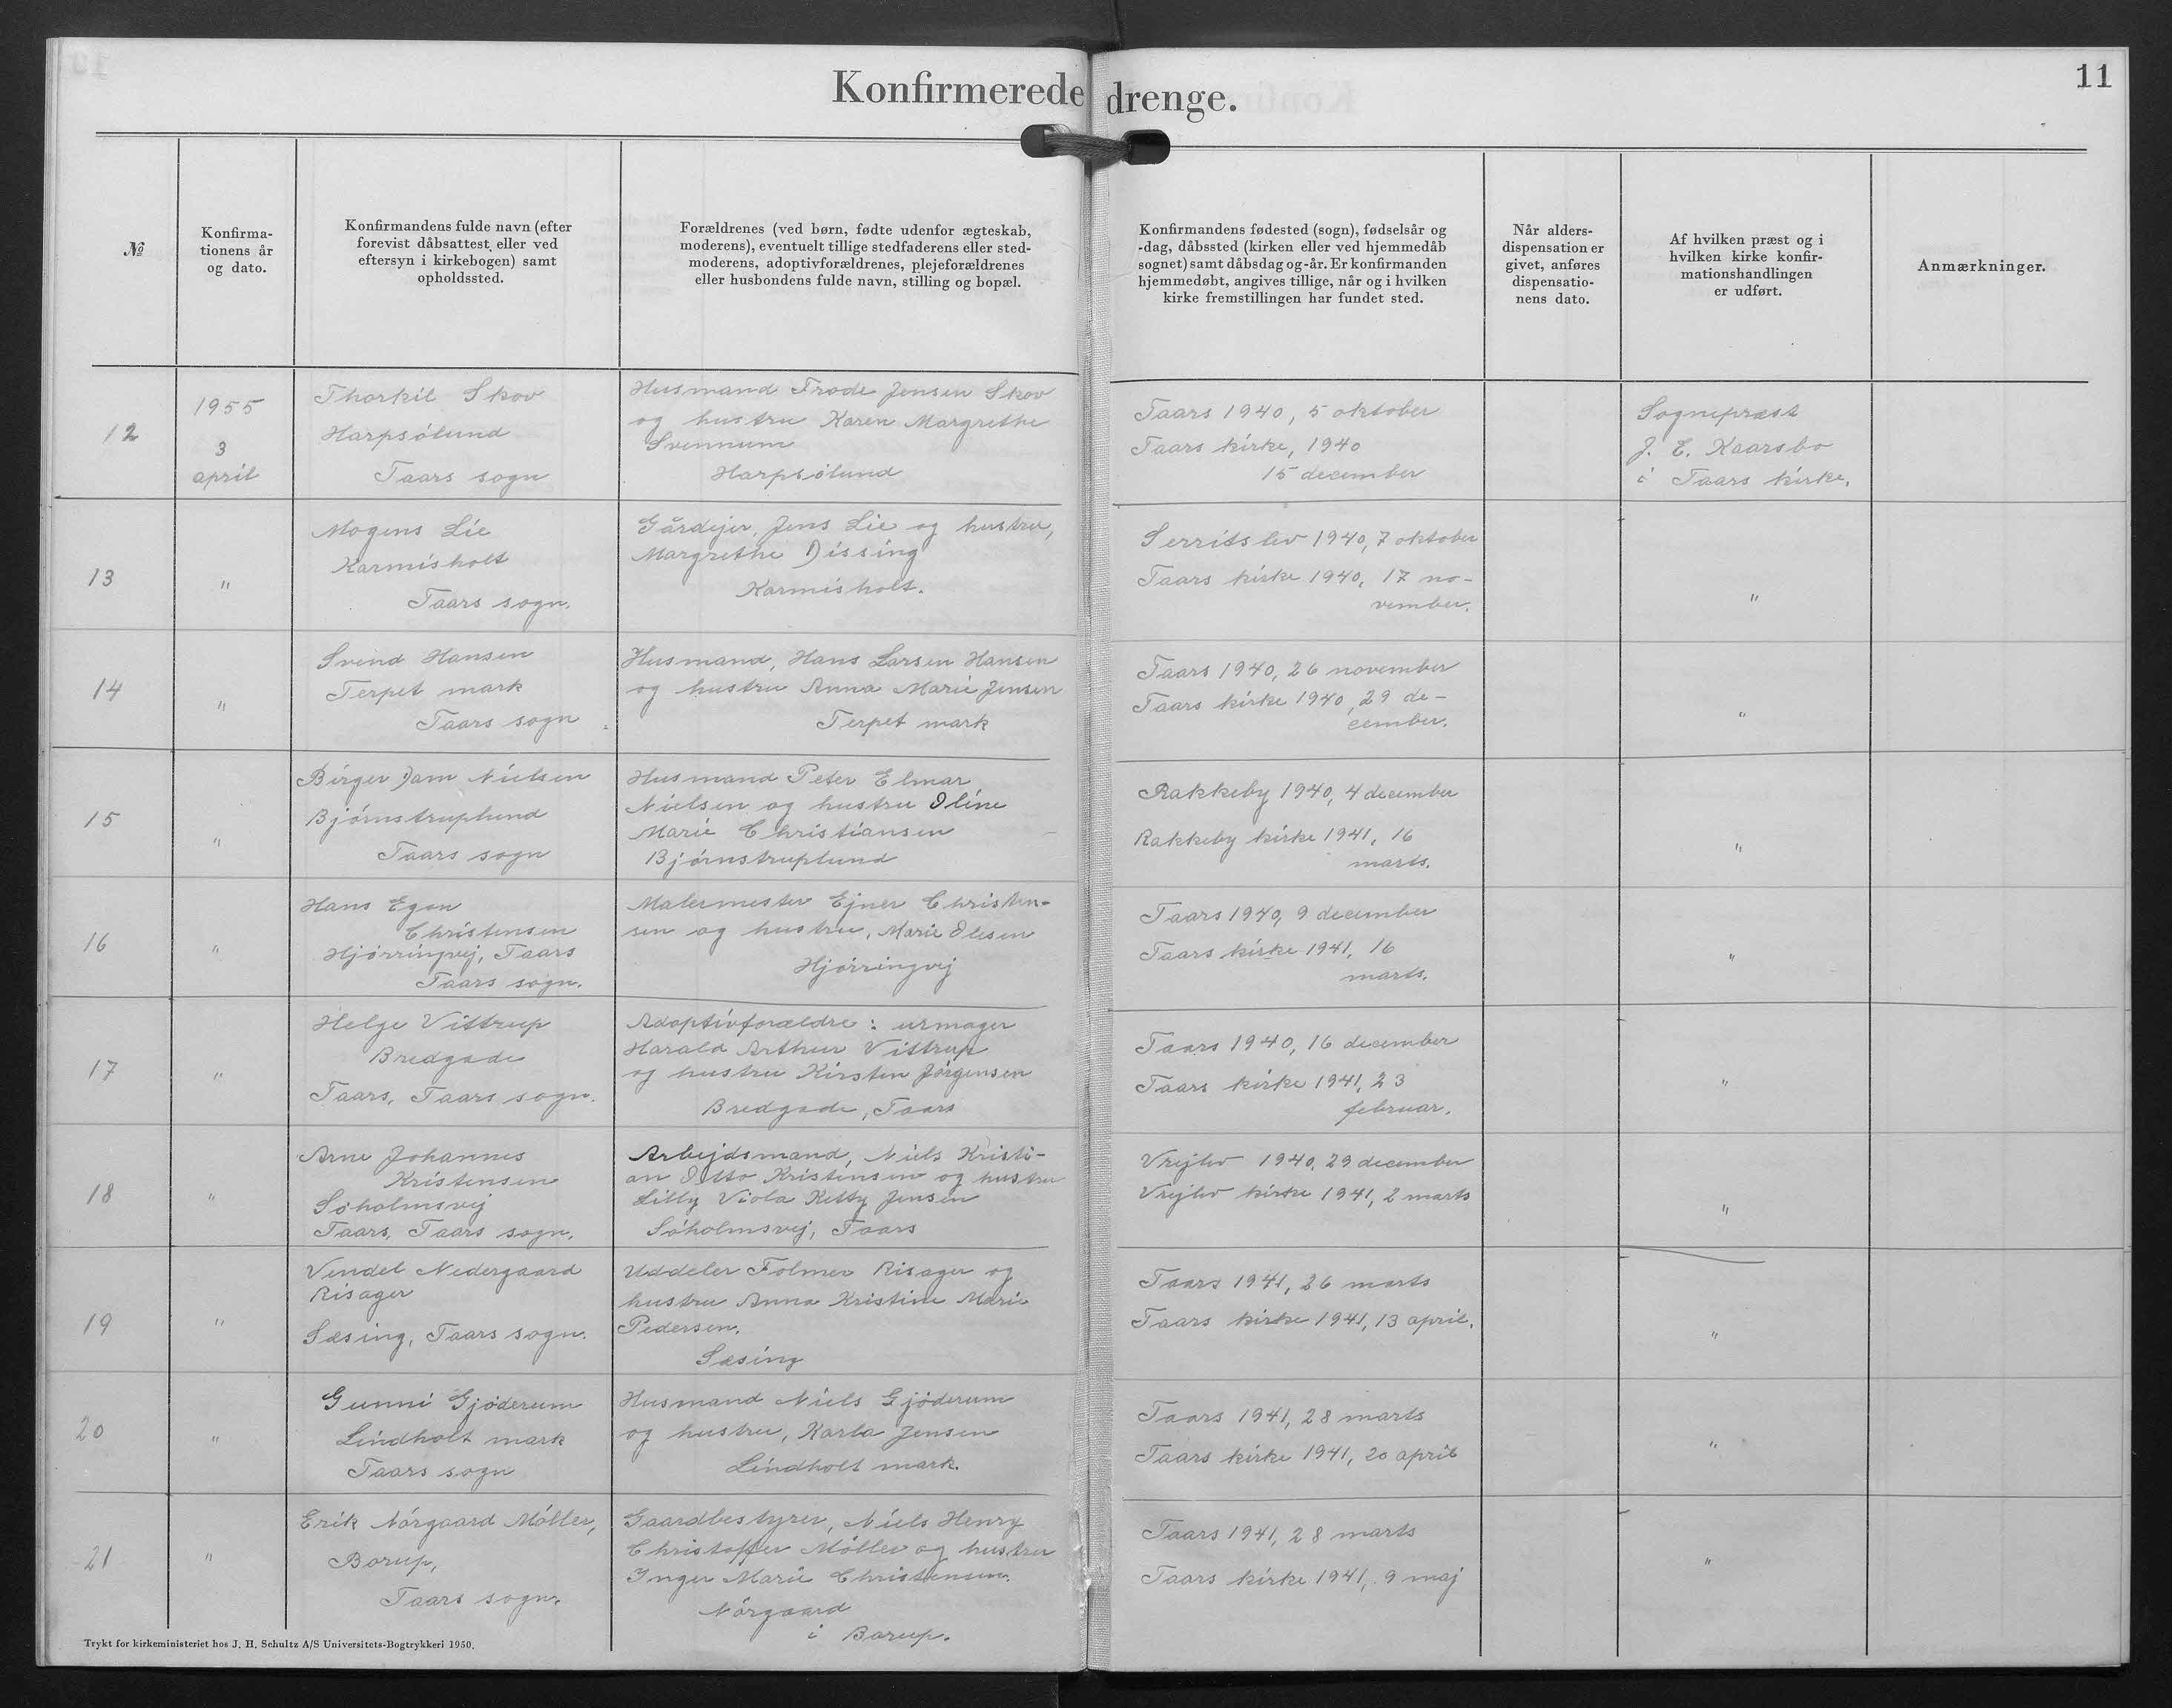 Konfirmerede drenge.
11
№
Konfirma-
tionens år
og dato.
Konfirmandens fulde navn (efter
forevist dåbsattest eller ved
eftersyn i kirkebogen) samt
opholdssted.
Forældrenes (ved børn, fødte udenfor ægteskab,
moderens), eventuelt tillige stedfaderens eller sted-
moderens, adoptivforældrenes, plejeforældrenes
eller husbondens fulde navn, stilling og bopæl.
Konfirmandens fødested (sogn), fødselsår og
-dag, dåbssted (kirken eller ved hjemmedåb
sognet) samt dåbsdag og -år. Er konfirmanden
hjemmedøbt, angives tillige, når og i hvilken
kirke fremstillingen har fundet sted.
Når alders-
dispensation er
givet, anføres
dispensatio-
nens dato.
Af hvilken præst og i
hvilken kirke konfir-
mationshandlingen
er udført.
Anmærkninger.
12
1955
3
april
Thorkil Skov
Harpsølund
Taars sogn
Husmand Frode Jensen Skov
og hustru Karen Margrethe
Svennum
Harpsølund
Taars 1940, 5 oktober
Taars kirke, 1940
15 december
Sognepræst
J. E. Kaarsbo
i Taars kirke.
13
"
Mogens Lie
Karmisholt
Taars sogn.
Gårdejer, Jens Lie og hustru,
Margrethe Dissing
Karmisholt.
Serritslev 1940, 7 oktober
Taars kirke 1940, 17 no-
vember.
"
14
"
Svend Hansen
Terpet mark
Taars sogn
Husmand, Hans Larsen Hansen
og hustru Anna Marie Jensen
Terpet mark
Taars 1940, 26 november
Taars kirke 1940, 29 de-
cember.
"
15
"
Birger Dam Nielsen
Bjørnstruplund
Taars sogn
Husmand Peter Elmar
Nielsen og hustru Oline
Marie Christiansen
Bjørnstruplund
Rakkeby 1940, 4 december
Rakkeby kirke 1941, 16
marts.
"
16
"
Hans Egon
Christensen
Hjørringvej, Taars
Taars sogn.
Malermester Ejner Christen-
sen og hustru, Marie Olesen
Hjørringvej
Taars 1940, 9 december
Taars kirke 1941, 16
marts.
"
17
"
Helge Vittrup
Bredgade
Taars, Taars sogn.
Adoptivforældre: urmager
Harald Arthur Vittrup
og hustru Kirsten Jørgensen
Bredgade, Taars
Taars 1940, 16 december
Taars kirke 1941, 23
februar.
"
18
"
Arne Johannes
Kristensen
Søholmsvej
Taars, Taars sogn.
Arbejdsmand, Niels Kristi-
an Otto Kristensen og hustru
Lilly Viola Ketty Jensen
Søholmsvej, Taars
Vrejlev 1940, 29 december
Vrejlev kirke 1941, 2 marts
"
19
"
Vendel Nedergaard
Risager
Sæsing, Taars sogn.
Uddeler Folmer Risager og
hustru Anna Kristine Marie
Pedersen.
Sæsing
Taars 1941, 26 marts
Taars kirke 1941, 13 april.
"
20
"
Gunni Gjøderum
Lindholt mark
Taars sogn
Husmand Niels Gjøderum
og hustru, Karla Jensen
Lindholt mark.
Taars 1941, 28 marts
Taars kirke 1941, 20 april
"
21
"
Erik Nørgaard Møller,
Borup,
Taars sogn.
Gaardbestyrer, Niels Henry
Christoffer Møller og hustru
Inger Marie Christensen.
Nørgaard
i Borup.
Taars 1941, 28 marts
Taars kirke 1941, 9 maj
"
Trykt for kirkeministeriet hos J. H. Schultz A/S Universitets-Bogtrykkeri 1950.